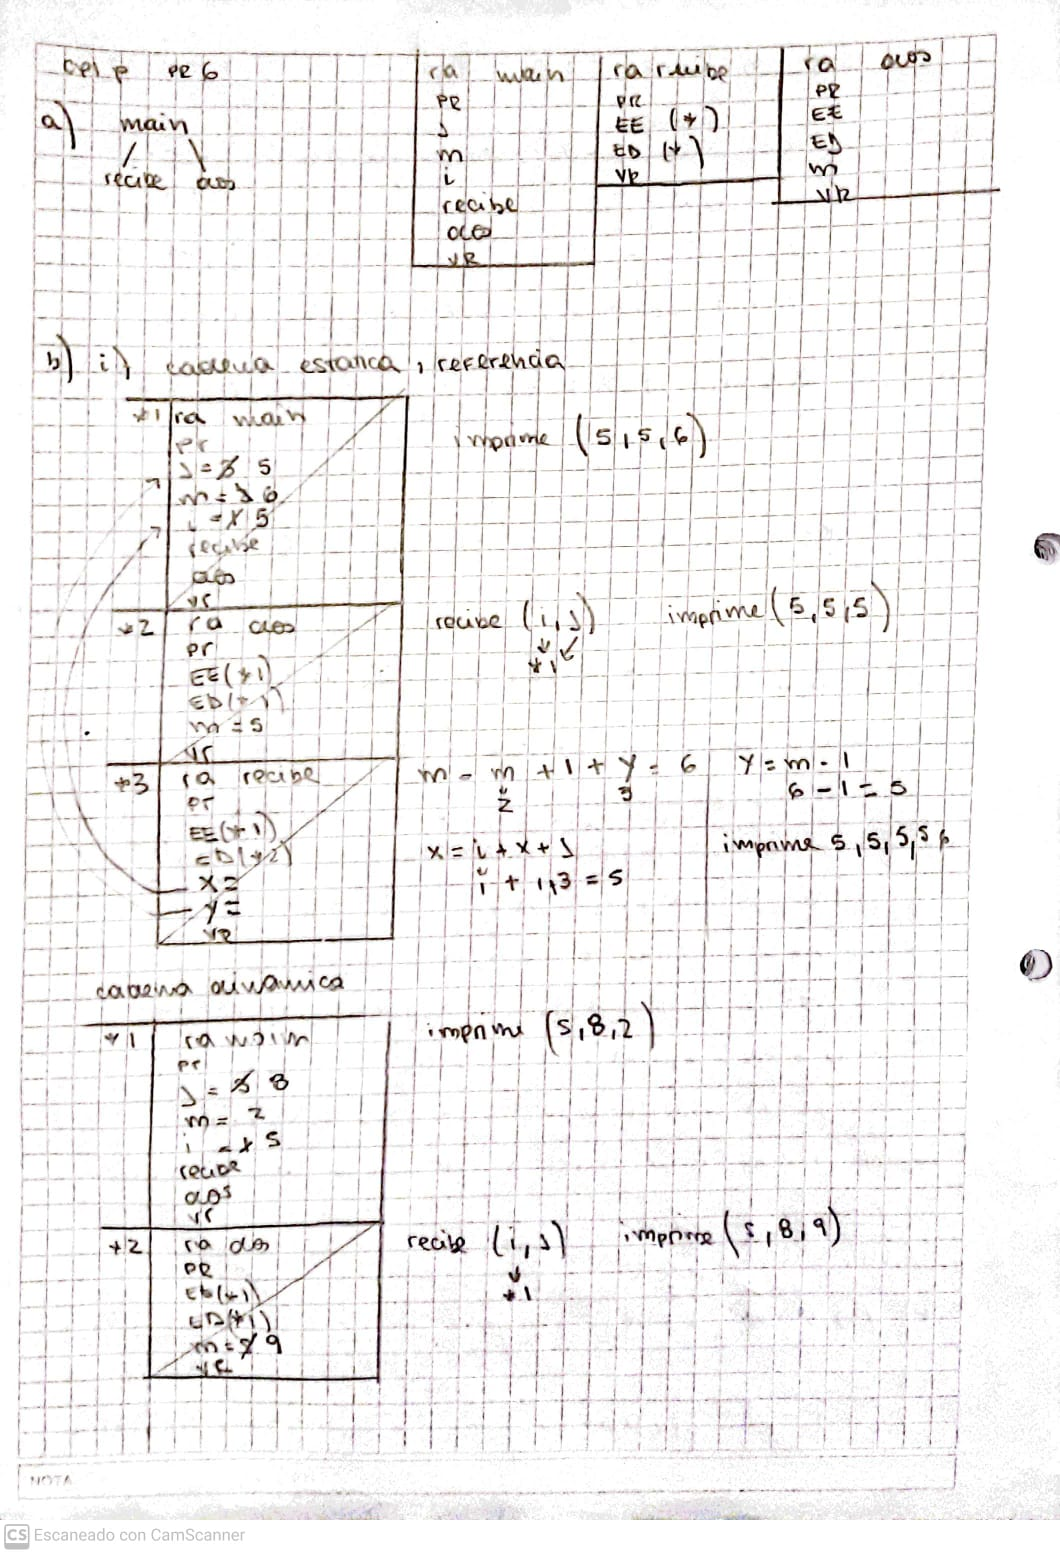 PR 6
a) main
recibe dos
ra main
PR
J
m
i
recibe
dos
VR
ra recibe
PR
EE (*)
ED (*)
VR
ra dos
PR
EE
ED
m
VR
b) i) cadena estatica, referencia
*1 ra main
pr
J = 3 5
m = 6
i = 1 5
recibe
dos
vr
imprime (5,5,6)
*2 ra dos
pr
EE(*1)
ED(*1)
m = 5
vr
recibe (i,J) imprime (5,5,5)
*1
*3 ra recibe
pr
EE(*1)
ED(*2)
x =
y =
VR
m = m + 1 + y = 6 y = m - 1
2 3 6 - 1 = 5
x = i + x + J imprime 5,5,5,5
1 + 1,3 = 5
cadena dinamica
*1 ra main
pr
J = 8
m = 2
i = 1 5
recibe
dos
vr
imprime (5,8,2)
*2 ra dos
PR
EE(*1)
ED(*1)
m = 9
VR
recibe (i,J) imprime (5,8,9)
*1
NOTA
CS Escaneado con CamScanner